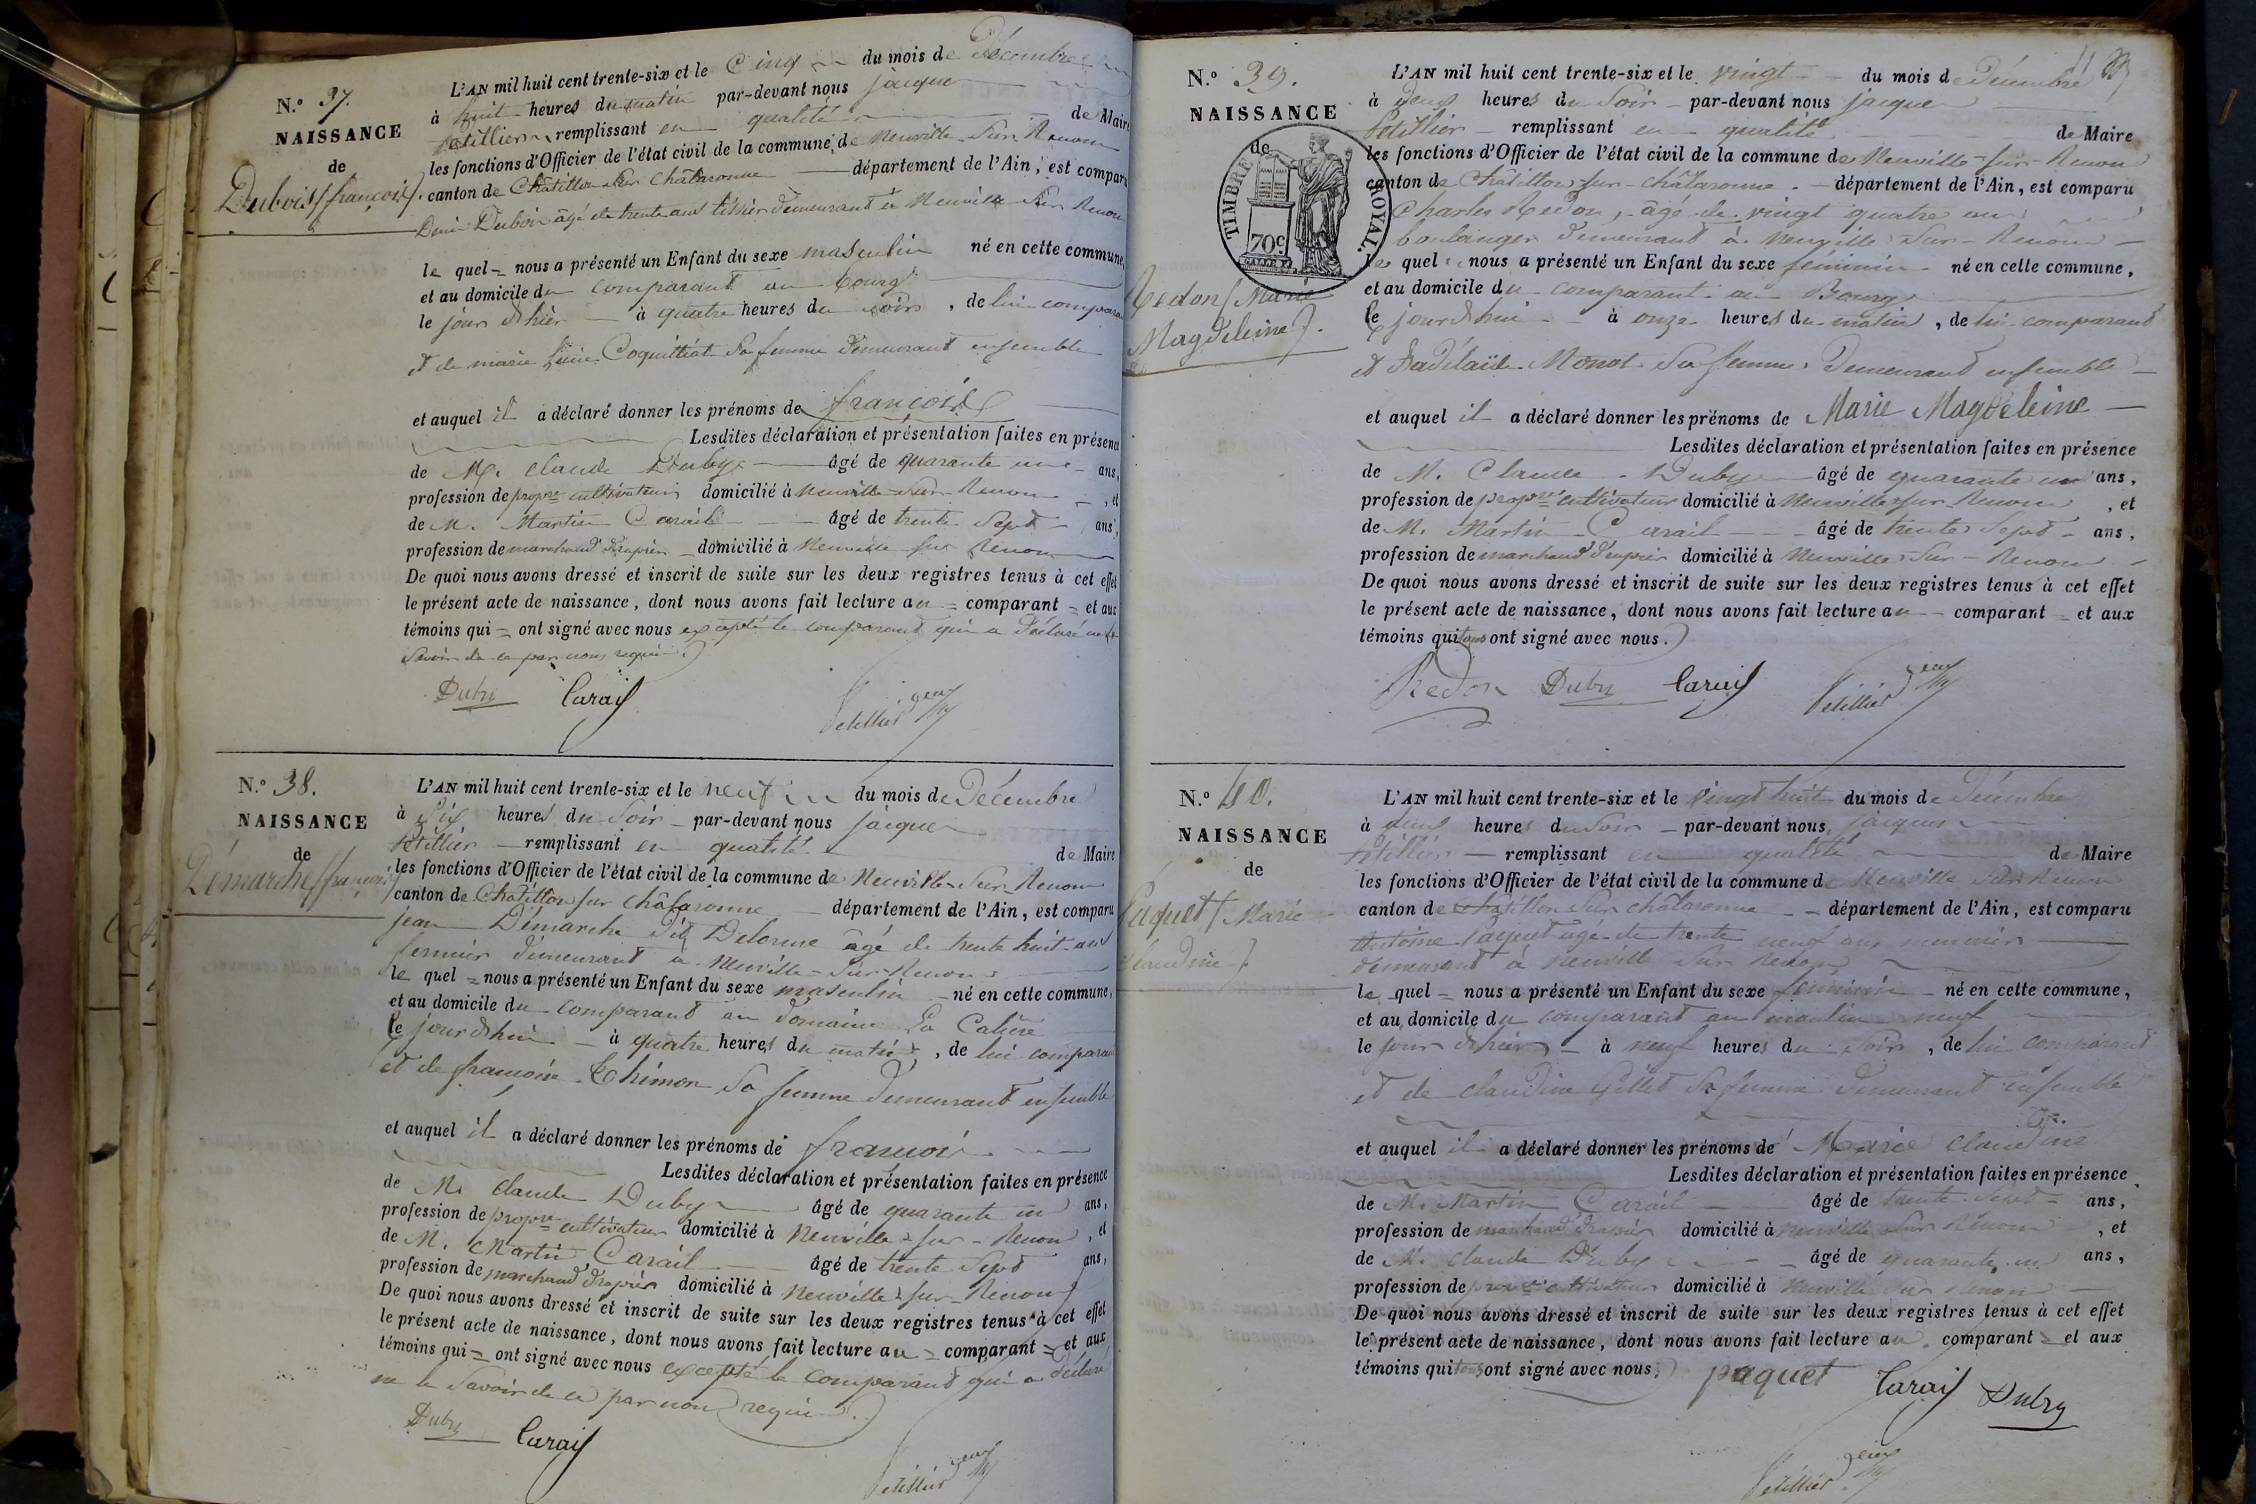 N.º 37.
NAISSANCE
de
Dubois (françois).
L'AN mil huit cent trente-six et le Cinq du mois de Décembre
à huit heures du matin par-devant nous jacque
Petillier remplissant en qualité de Maire
les fonctions d'Officier de l'état civil de la commune de Neuville sur Renom
canton de Châtillon sur Châlaronne département de l'Ain, est comparu
Dubois âgé de trente ans tissier demeurant à Neuville sur Renom
le quel = nous a présenté un Enfant du sexe masculin né en cette commune,
et au domicile du comparant au bourg
le jour d'hier à quatre heures du soir, de lui comparant
et de marie Coquilliat sa femme demeurant ensemble
et auquel il a déclaré donner les prénoms de françois
Lesdites déclaration et présentation faites en présence
de M. claude Duby âgé de quarante un ans,
profession de propre cultivateur domicilié à Neuville sur Renom, et
de M. Martin Carail âgé de trente sept ans,
profession de marchand drapier domicilié à Neuville sur Renom
De quoi nous avons dressé et inscrit de suite sur les deux registres tenus à cet effet
le présent acte de naissance, dont nous avons fait lecture au = comparant = et aux
témoins qui = ont signé avec nous excepté le comparant qui a déclaré ne le
savoir de ce par nous requis.
Duby Carail Petillier
N.º 38.
NAISSANCE
de
Démarche (françois)
L'AN mil huit cent trente-six et le neuf du mois de Décembre
à six heures du soir par-devant nous jacque
Petillier remplissant en qualité de Maire
les fonctions d'Officier de l'état civil de la commune de Neuville sur Renom
canton de Châtillon sur Châlaronne département de l'Ain, est comparu
jean Démarche dit Delorme âgé de trente huit ans
fermier demeurant à Neuville = sur Renom
le quel = nous a présenté un Enfant du sexe masculin né en cette commune,
et au domicile du comparant au domaine La
le jourd'hui à quatre heures du matin, de lui comparant
et de françoise Thimon sa femme demeurant ensemble
et auquel il a déclaré donner les prénoms de françois
Lesdites déclaration et présentation faites en présence
de M. claude Duby âgé de quarante un ans,
profession de propre cultivateur domicilié à Neuville = sur - Renom, et
de M. Martin Carail âgé de trente sept ans,
profession de marchand drapier domicilié à Neuville = sur - Renom
De quoi nous avons dressé et inscrit de suite sur les deux registres tenus à cet effet
le présent acte de naissance, dont nous avons fait lecture au = comparant = et aux
témoins qui = ont signé avec nous excepté le comparant qui a déclaré
ne le savoir de ce par nous requis.
Duby Carail
Petillier
N.º 39.
NAISSANCE
de
TIMBRE ROYAL.
70c
Redon (Marie
Magdeleine).
L'AN mil huit cent trente-six et le vingt du mois de Décembre
à deux heures du soir par-devant nous jacque
Petillier remplissant en qualité de Maire
les fonctions d'Officier de l'état civil de la commune de Neuville - sur - Renom
canton de Châtillon sur - châlaronne département de l'Ain, est comparu
Charles Redon, âgé de vingt quatre ans
boulanger demeurant à Neuville - sur - Renom
le quel nous a présenté un Enfant du sexe féminin né en cette commune,
et au domicile du comparant au Bourg
le jourd'hui à onze heures du matin, de lui comparant
et d'adélaïde Monot sa femme demeurant ensemble
et auquel il a déclaré donner les prénoms de Marie Magdeleine
Lesdites déclaration et présentation faites en présence
de M. Claude Duby âgé de quarante un ans,
profession de propre cultivateur domicilié à Neuville sur Renom, et
de M. Martin Carail âgé de trente sept ans,
profession de marchand drapier domicilié à Neuville - sur - Renom
De quoi nous avons dressé et inscrit de suite sur les deux registres tenus à cet effet
le présent acte de naissance, dont nous avons fait lecture au comparant et aux
témoins qui tous ont signé avec nous.
Redon Duby Carail Petillier
N.º 40.
NAISSANCE
de
Paquet (Marie
Claudine).
L'AN mil huit cent trente-six et le vingt huit du mois de Décembre
à deux heures du soir par-devant nous jacque
Petillier remplissant en qualité de Maire
les fonctions d'Officier de l'état civil de la commune de Neuville sur Renom
canton de Châtillon sur châlaronne département de l'Ain, est comparu
Antoine Paquet âgé de trente neuf ans meunier
demeurant à Neuville sur Renom
le quel = nous a présenté un Enfant du sexe féminin né en cette commune,
et au domicile du comparant au moulin neuf
le jour d'hier à neuf heures du soir, de lui comparant
et de claudine Gillet sa femme demeurant ensemble
et auquel il a déclaré donner les prénoms de Marie claudine
Lesdites déclaration et présentation faites en présence
de M. Martin Carail âgé de trente sept ans,
profession de marchand drapier domicilié à Neuville sur Renom, et
de M. Claude Duby âgé de quarante un ans,
profession de propre cultivateur domicilié à Neuville sur Renom
De quoi nous avons dressé et inscrit de suite sur les deux registres tenus à cet effet
le présent acte de naissance, dont nous avons fait lecture au comparant = et aux
témoins qui tous ont signé avec nous.
paquet Carail Duby
Petillier